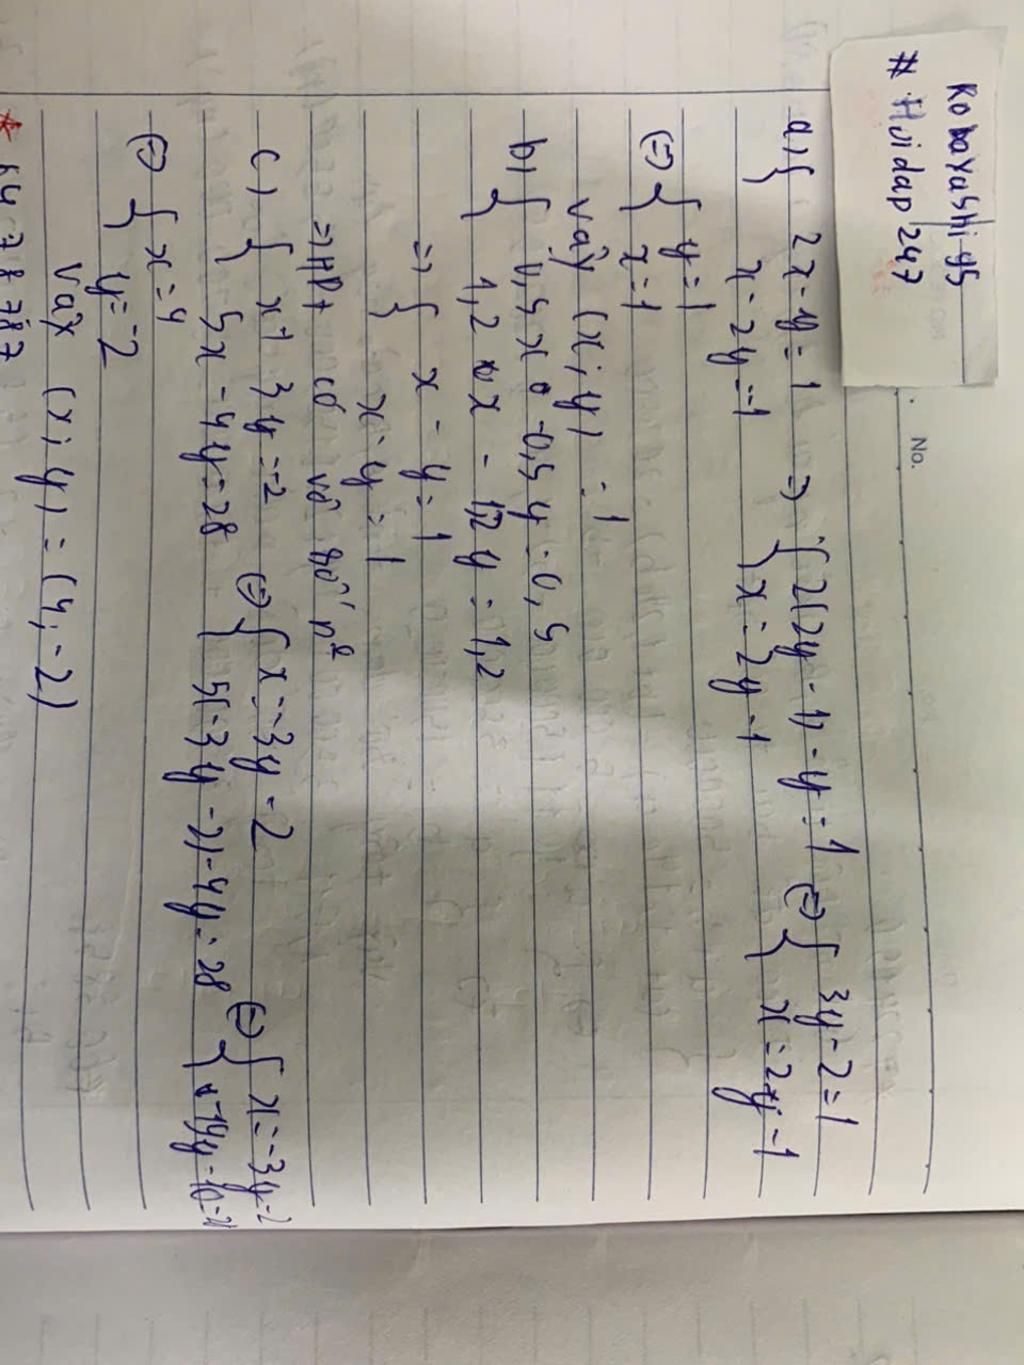 Kobayashi 95
# Huidap 247
No.
a) { 2x - y = 1 => { 2(2y - 1) - y = 1 (=) { 3y - 2 = 1
x - 2y = -1 x = 2y - 1 x = 2y - 1
(=) { y = 1
x = 1
vậy (x; y) = 1
b) { 0,5x - 0,5y = 0,5
1,2x - 1,2y = 1,2
=> { x - y = 1
x - y = 1
=> HPt có vô số n
c) { x + 3y = -2 (=) { x = -3y - 2 (=) { x = -3y - 2
5x - 4y = 28 5(-3y - 2) - 4y = 28 -19y - 10 = 28
(=) { x = 4
y = -2
Vậy (x; y) = (4; -2)